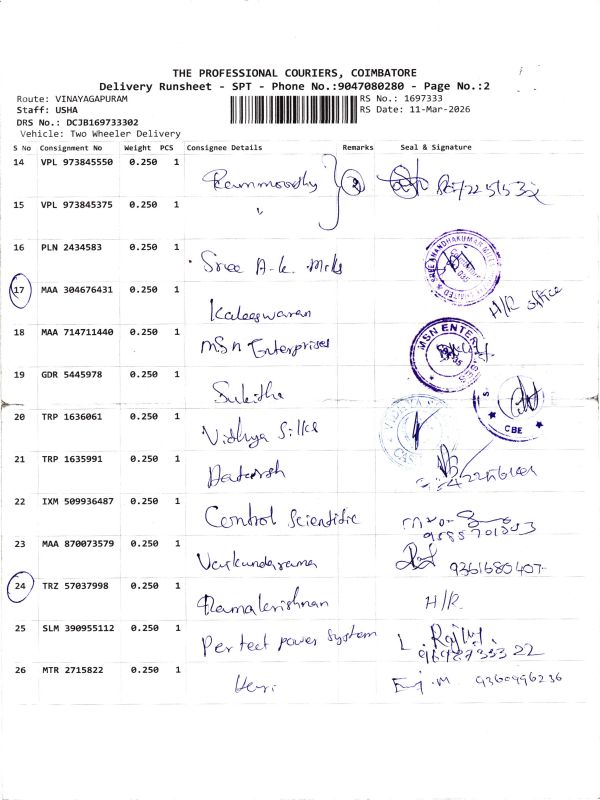 THE PROFESSIONAL COURIERS, COIMBATORE
Delivery Runsheet - SPT - Phone No.:9047080280 - Page No.:2
Route: VINAYAGAPURAM
Staff: USHA
DRS No.: DCJB169733302
Vehicle: Two Wheeler Delivery
RS No.: 1697333
RS Date: 11-Mar-2026
S No Consignment No Weight PCS Consignee Details Remarks Seal & Signature
14 VPL 973845550 0.250 1 Rammoorthy 2
15 VPL 973845375 0.250 1 "
16 PLN 2434583 0.250 1 Sree A.K. Mills
17 MAA 304676431 0.250 1 Kaleeswaran H/R office
18 MAA 714711440 0.250 1 MSN Enterprises MSN ENTERPRISES
19 GDR 5445978 0.250 1 Sukitha CBE
20 TRP 1636061 0.250 1 Vidhya Silks
21 TRP 1635991 0.250 1
22 IXM 509936487 0.250 1 Control Scientific
23 MAA 870073579 0.250 1 Venkundarama 9361680407
24 TRZ 57037998 0.250 1 Ramakrishnan H/R.
25 SLM 390955112 0.250 1 Perfect power System
26 MTR 2715822 0.250 1 9360996236